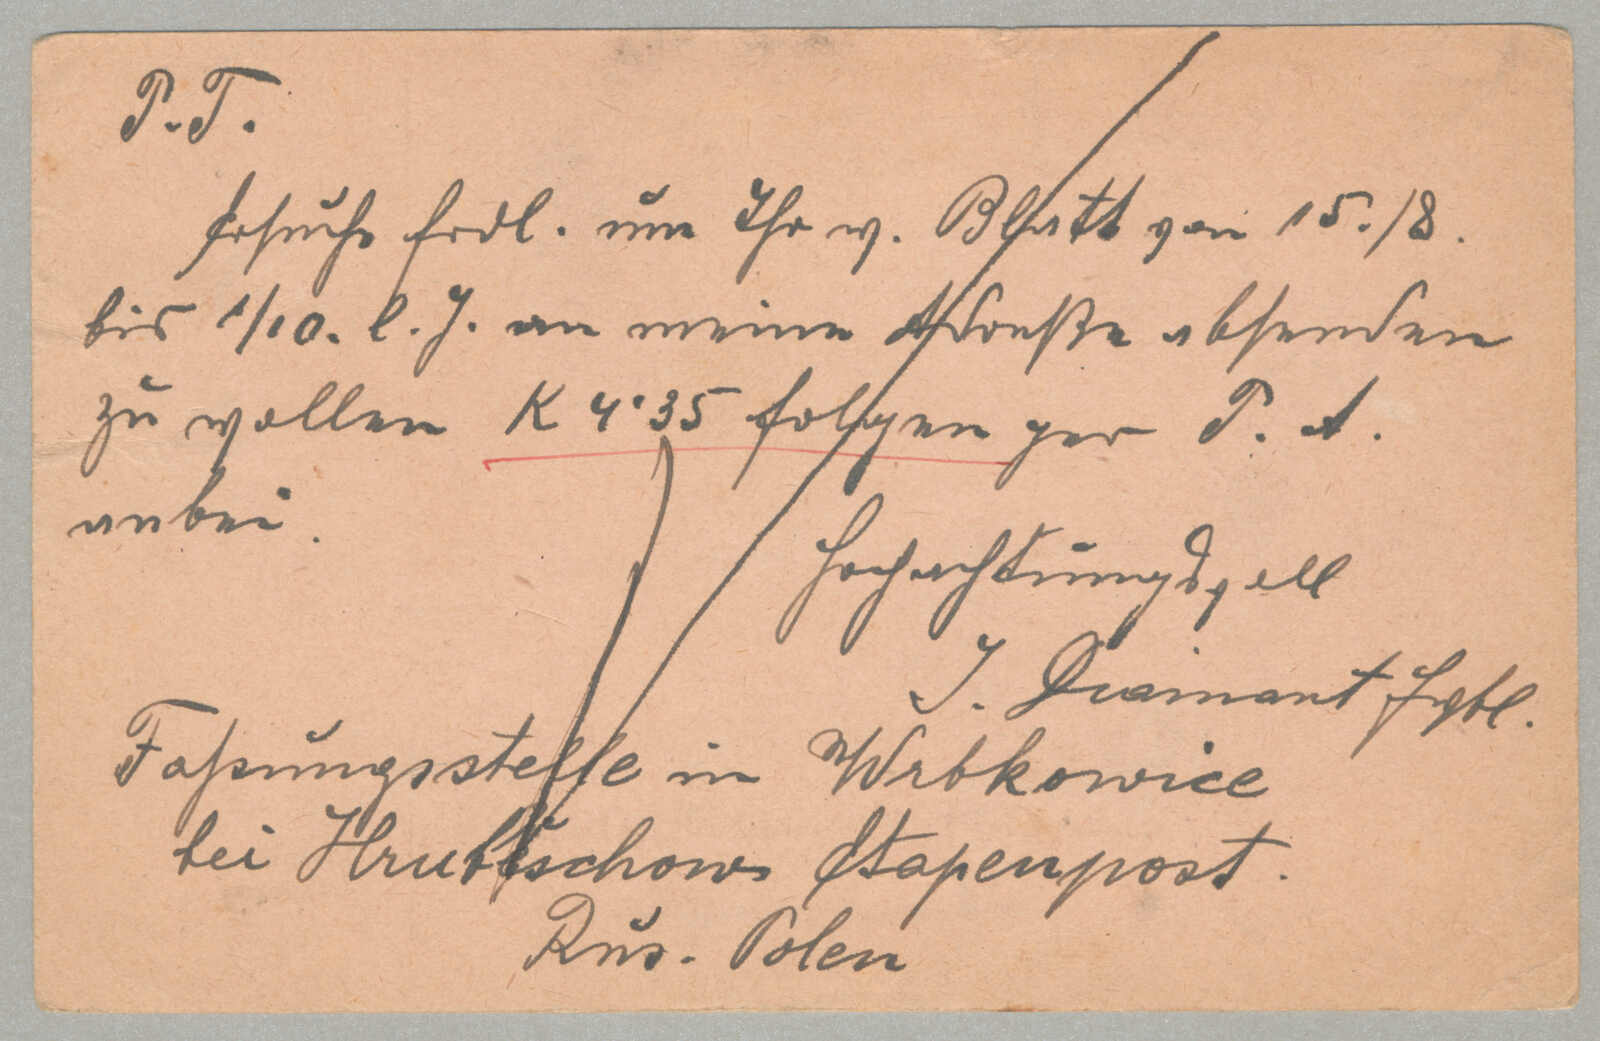 P.T.
Ersuche frdl. um Ihr w. Blatt von 15./8.
bis 1/10. l. J. an meine Adreße absenden
zu wollen K 4·35 folgen per P. A.
anbei.
Hochachtungsvoll
J. Diamant
Faßungsstelle in Wrbkowice
bei Hrubischow Etapenpost.
Rus. Polen